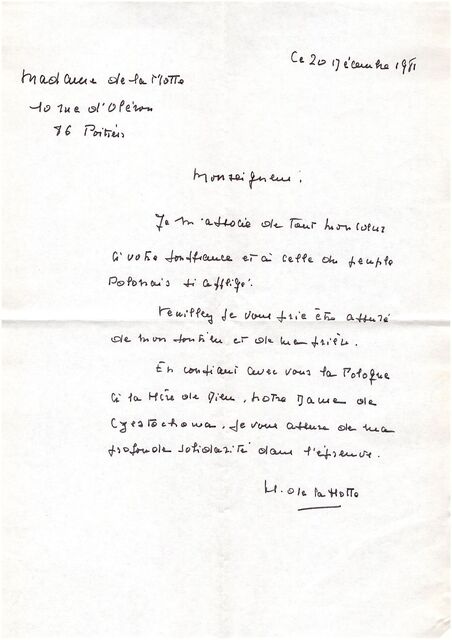 Ce 20 Décembre 1981
Madame de la Motte
10 rue d'Oléron
86 Poitiers
Monseigneur,
Je m'associe de tout mon coeur
à votre souffrance et à celle du peuple
Polonais si affligé.
Veuillez je vous prie être assuré
de mon soutien et de ma prière.
En confiant avec vous la Pologne
à la Mère de Dieu, Notre Dame de
Czestochowa, je vous assure de ma
profonde solidarité dans l'épreuve.
M. de la Motte